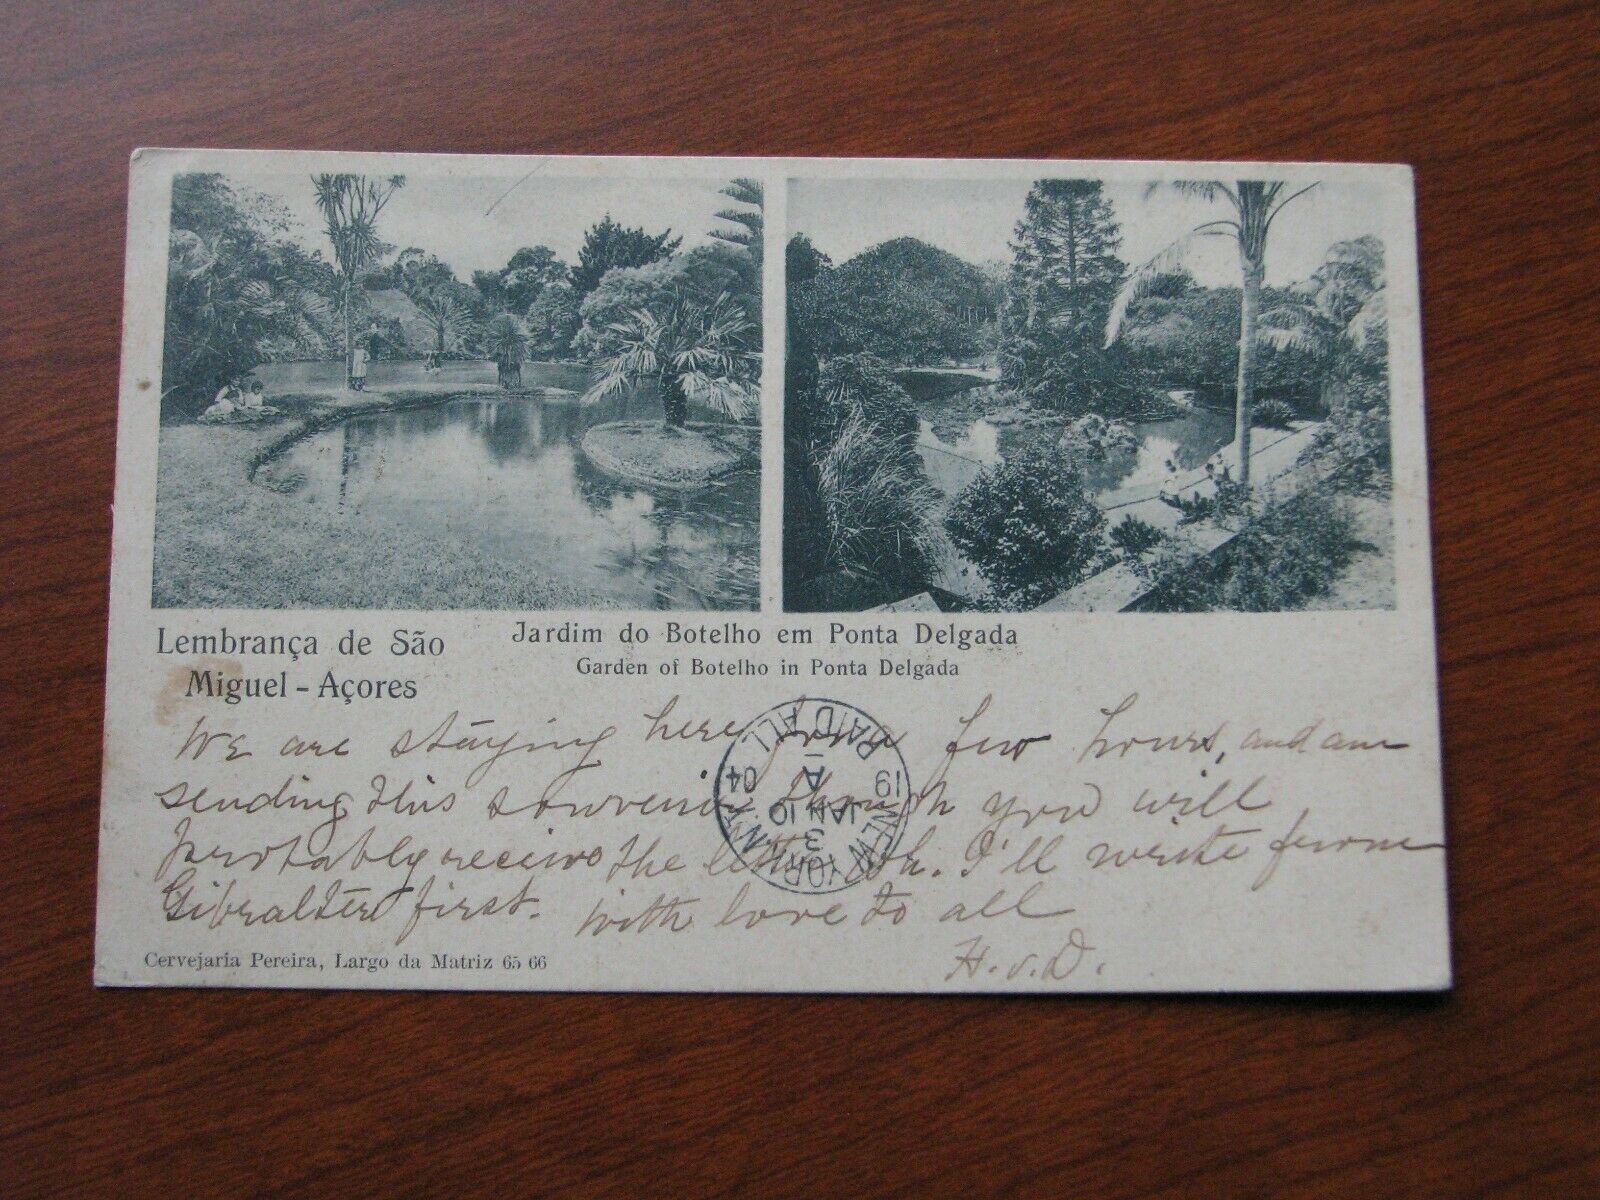 Lembrança de São
Miguel - Açores
Jardim do Botelho em Ponta Delgada
Garden of Botelho in Ponta Delgada
We are staying here for a few hours, and am
sending this souvenir though you will
probably receive the letter I'll write from
Gibralter first. with love to all
H.v.D.
Cervejaria Pereira, Largo da Matriz 65 66
NEW YORK, N.Y.
3
JAN 10
A
19 04
PAID ALL